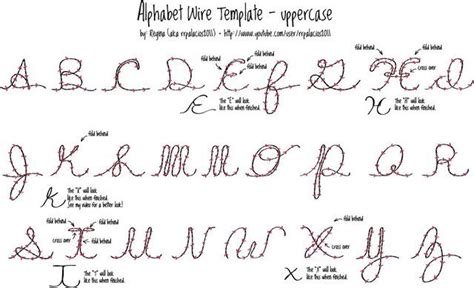 Alphabet Wire Template - uppercase
by: Regina (aka
fold behind
fold behind
cross over
A B C D E F G H I
E
the "E" will look
like this when finished.
H
the "H" will look
like this when finished.
fold behind
J K L M N O P Q R
K
the "K" will look
like this when finished.
see my video for a better look!
fold behind
fold behind
cross over
fold behind
cross over
fold behind
S T U V W X Y Z
I
the "T" will look
like this when finished.
X
the "X" will look
like this when finished.